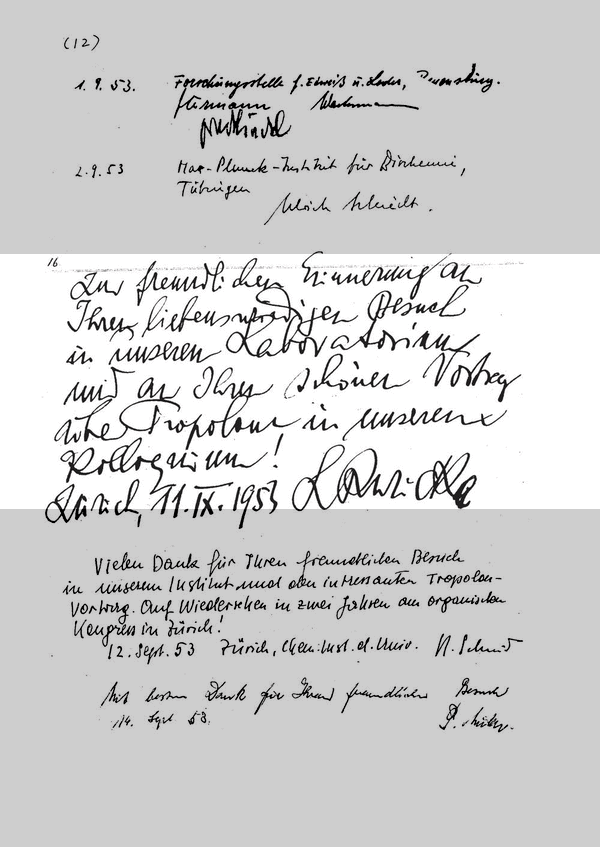 (12)
1.9.53. Forschungsstelle f. Eiweiß u. Leder, Regensburg.
2.9.53 Max-Planck-Institut für Biochemie,
Tübingen
Ulrich
16
Zur freundlichen Erinnerung an
Ihren liebenswürdigen Besuch
in unseren Laboratorium
und an Ihren schönen Vortrag
über Tropolone in unserem
Kolloquium!
Zürich, 11.IX.1953 L Ruzicka
Vielen Dank für Ihren freundlichen Besuch
in unserem Institut und den interessanten Tropolon-
Vortrag. Auf Wiedersehen in zwei Jahren am organischen
Kongress in Zürich!
12. Sept. 53 Zürich, Chem. Inst. d. Univ. H. Schmid
Mit bestem Dank für Ihren freundlichen Besuch
14. Sept 53. P.